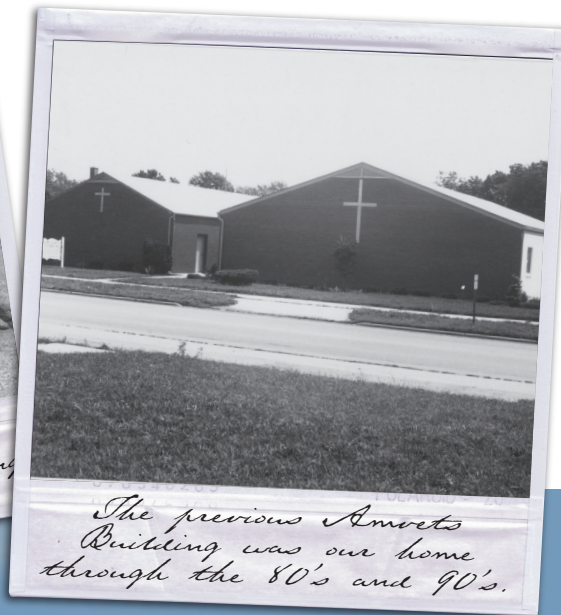 The previous Amvets
Building was our home
through the 80's and 90's.